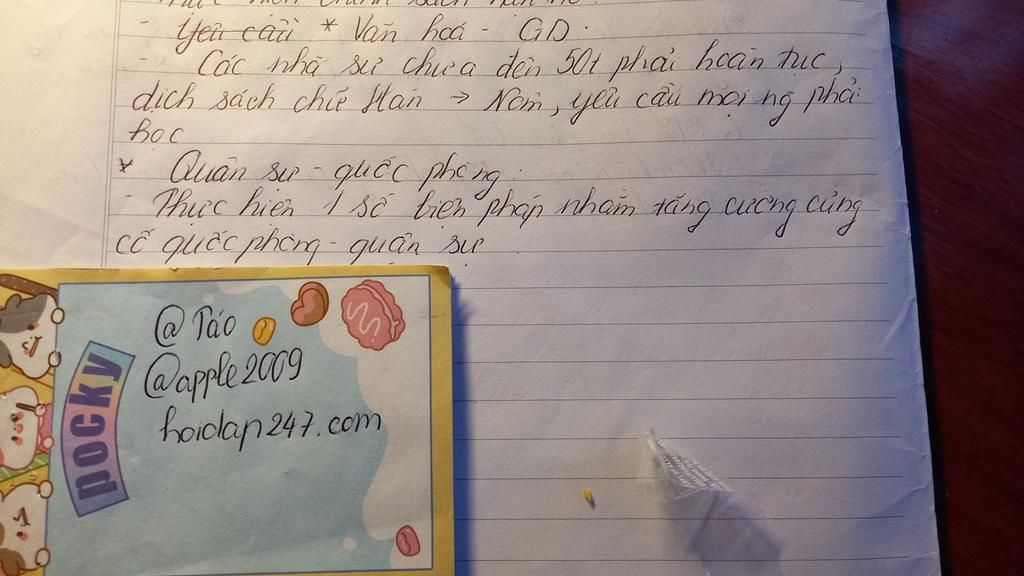 thực hiện chính sách hạn nô.
- yêu cầu * Văn hoá - GD.
- Các nhà sư chưa đến 50t phải hoàn tục,
dịch sách chữ Hán → Nôm, yêu cầu mọi ng phải
học
* Quân sự - quốc phòng:
- Thực hiện 1 số biện pháp nhằm tăng cường củng
cố quốc phòng - quân sự
@ Táo
@apple2009
hoidap247.com
pocky